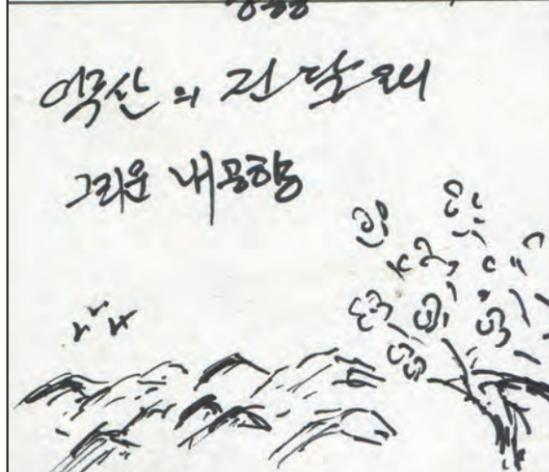 약산의 진달래
그리운 내고향